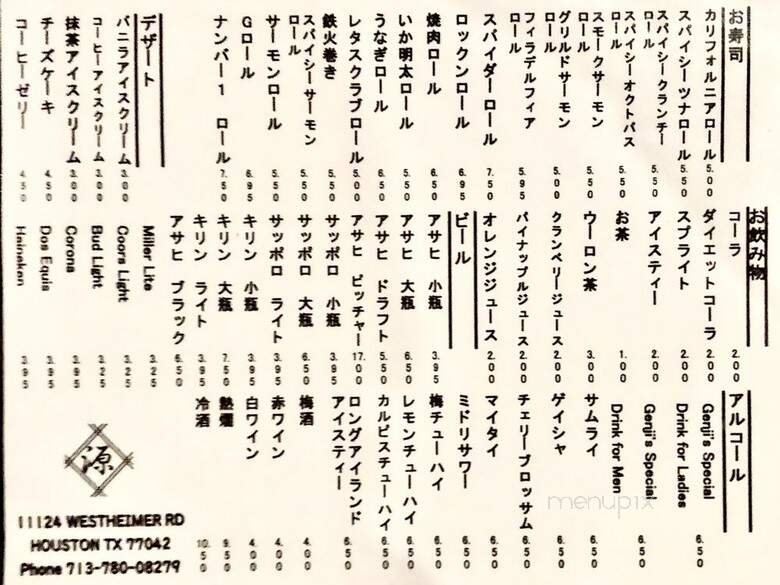 お寿司
カリフォルニアロール 5.00
スパイシーツナロール 5.50
スパイシークランチーロール 5.50
スパイシーオクトパスロール 5.50
スモークサーモンロール 5.50
グリルドサーモンロール 5.00
フィラデルフィアロール 5.95
スパイダーロール 7.50
ロックンロール 6.95
焼肉ロール 6.50
いか明太ロール 5.50
うなぎロール 5.00
レタスクラブロール 5.00
鉄火巻き 5.50
スパイシーサーモンロール 5.50
サーモンロール 5.50
Gロール 6.95
ナンバー1 ロール 7.50
デザート
バニラアイスクリーム 3.00
コーヒーアイスクリーム 3.00
抹茶アイスクリーム 3.00
チーズケーキ 4.50
コーヒーゼリー 4.50
お飲み物
コーラ 2.00
ダイエットコーラ 2.00
スプライト 2.00
アイスティー 2.00
お茶 1.00
ウーロン茶 3.00
クランベリージュース 2.00
パイナップルジュース 2.00
オレンジジュース 2.00
ビール
アサヒ 小瓶 3.95
アサヒ 大瓶 6.50
アサヒ ドラフト 5.50
アサヒ ピッチャー 17.00
サッポロ 小瓶 3.95
サッポロ 大瓶 6.50
サッポロ ライト 3.95
キリン 小瓶 3.95
キリン 大瓶 7.50
キリン ライト 3.95
アサヒ ブラック 6.50
Miller Lite 3.25
Coors Light 3.25
Bud Light 3.25
Corona 3.95
Dos Equis 3.95
Heineken 3.95
アルコール
Genji's Special Drink for Ladies 6.50
Genji's Special Drink for Men 6.50
サムライ 6.50
ゲイシャ 6.50
チェリーブロッサム 6.50
マイタイ 6.50
ミドリサワー 6.50
梅チューハイ 6.50
レモンチューハイ 6.50
カルピスチューハイ 6.50
ロングアイランドアイスティー 6.50
梅酒 4.00
赤ワイン 4.00
白ワイン 4.00
熱燗 9.50
冷酒 10.50
源
11124 WESTHEIMER RD
HOUSTON TX 77042
Phone 713-780-08279
menupix